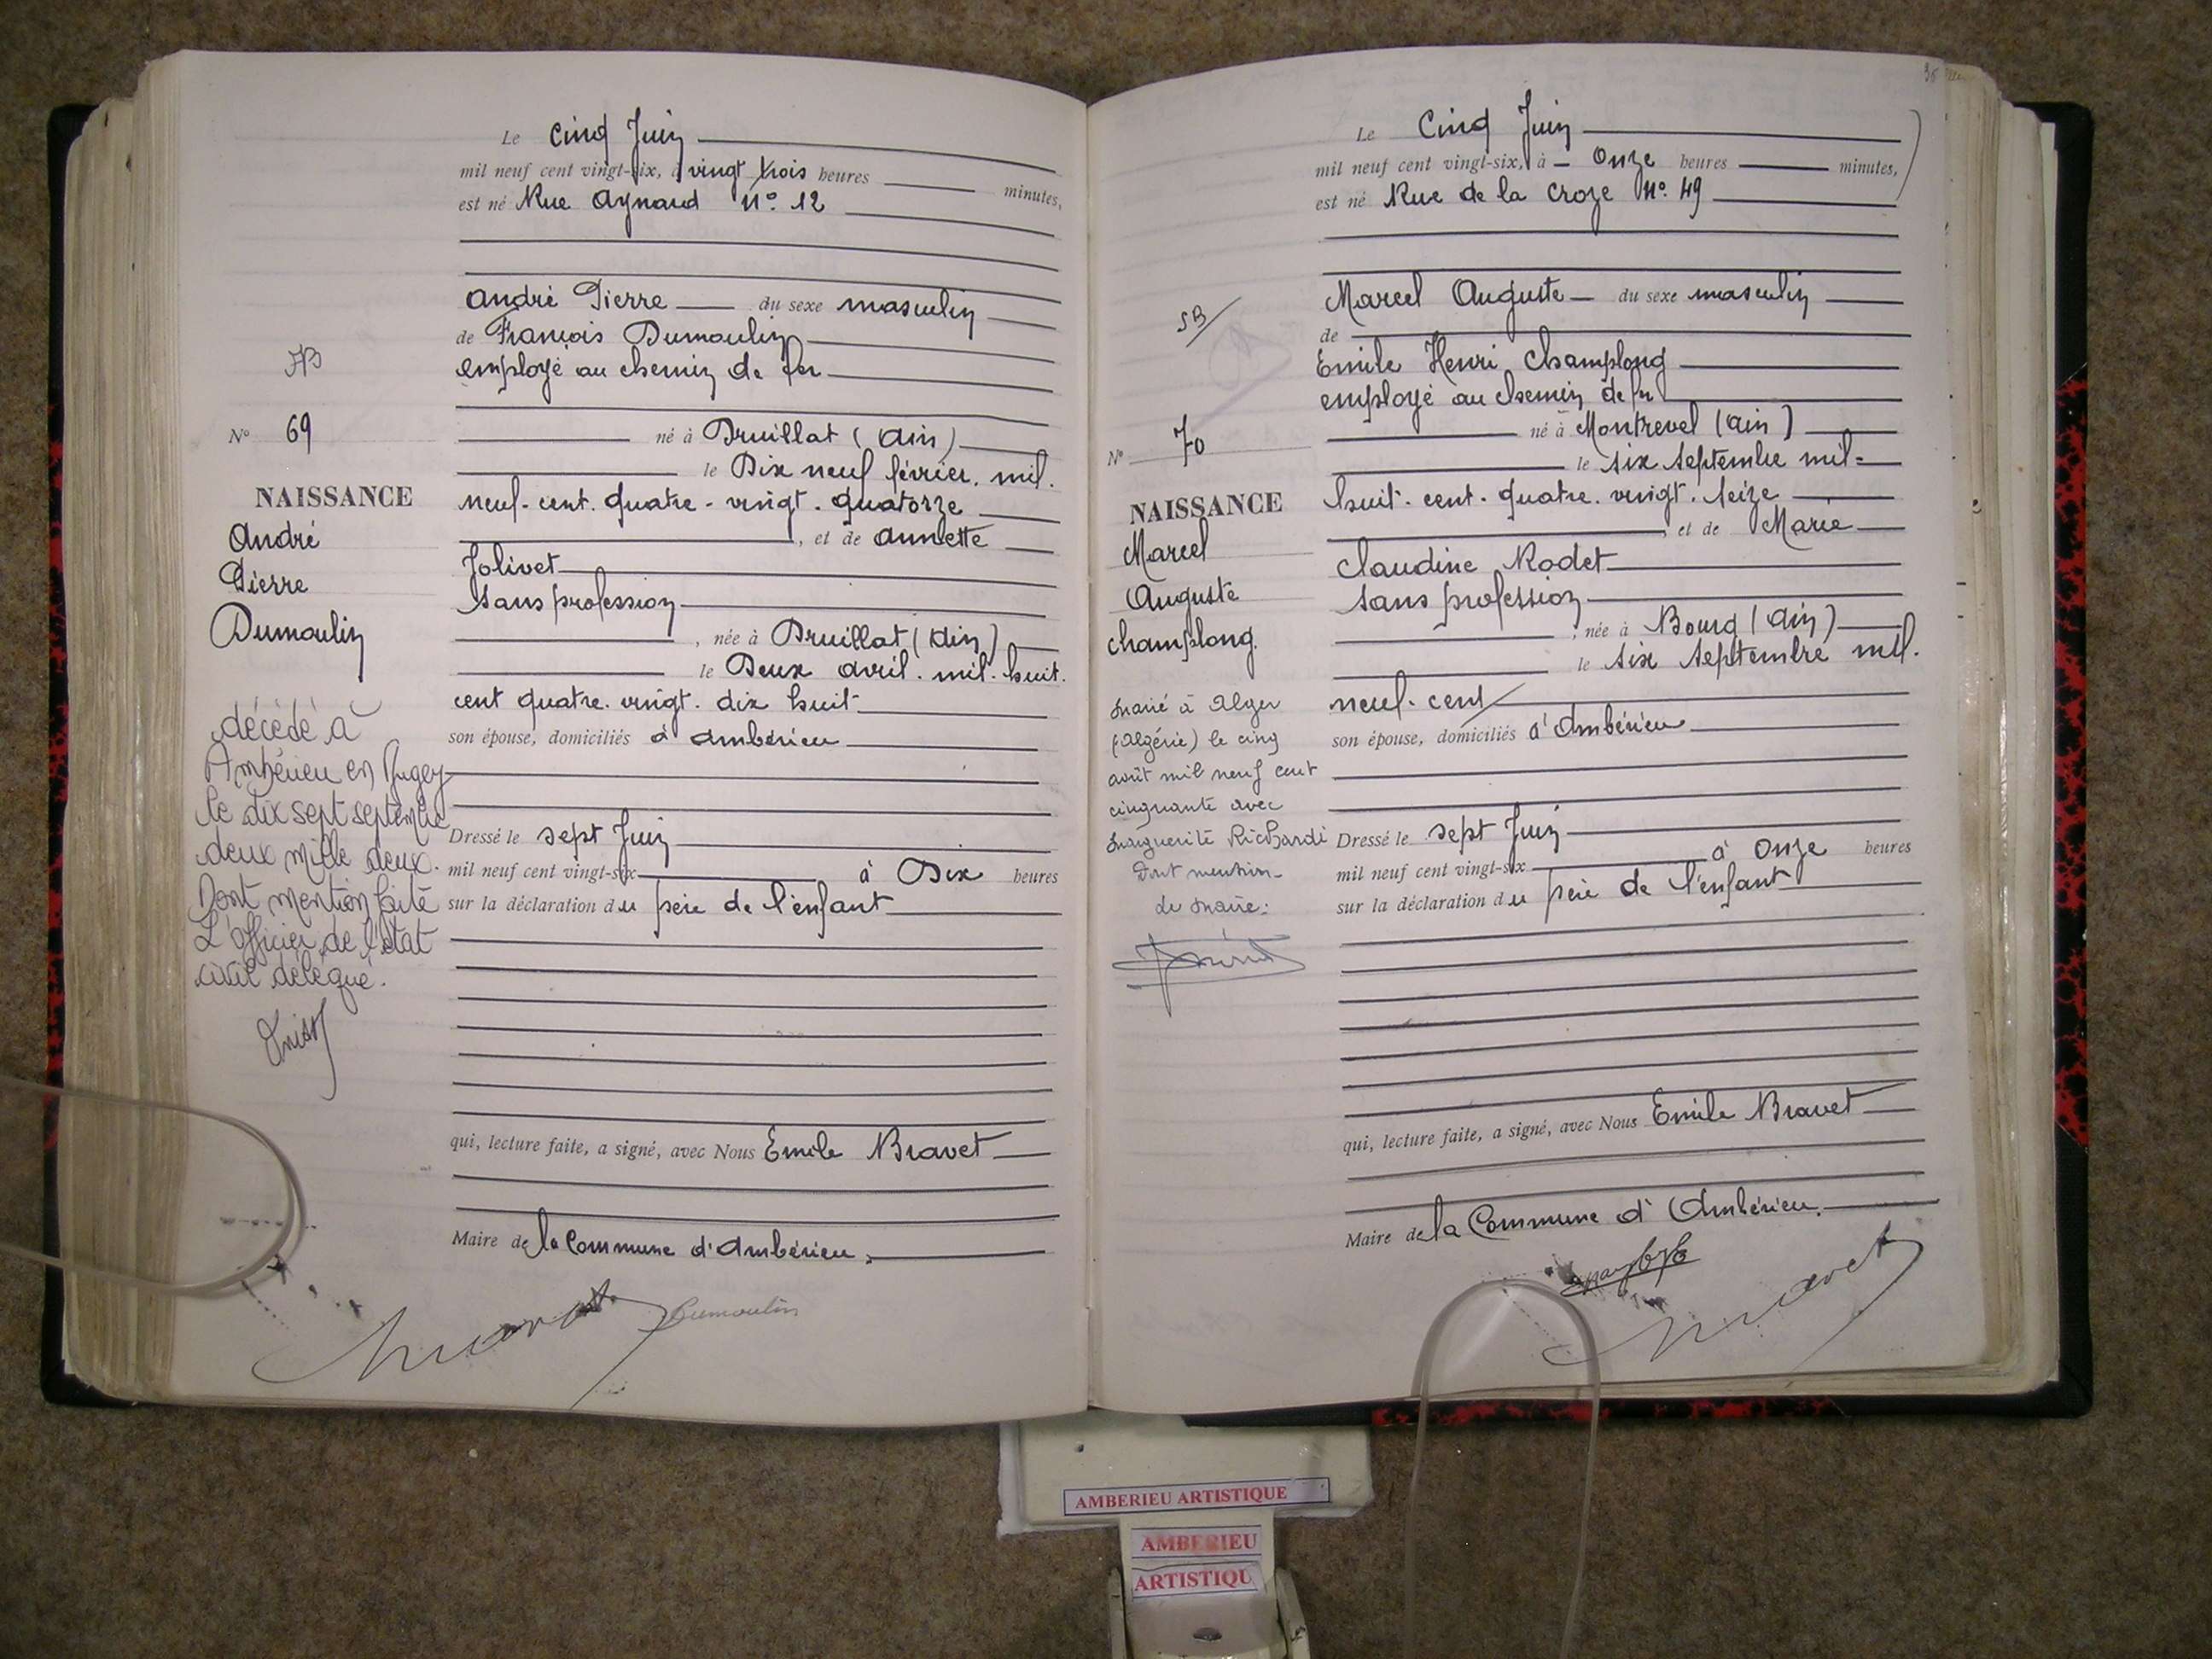 Le cinq Juin
mil neuf cent vingt-six, à vingt trois heures minutes,
est né Rue Aynaud N° 12
André Pierre du sexe masculin
de François Dumoulin
employé au chemin de fer
né à Druillat (Ain)
le Dix neuf février. mil.
neuf. cent. quatre - vingt. quatorze
, et de Annette
Jolivet
sans profession
, née à Druillat (Ain)
le Deux avril. mil. huit.
cent quatre. vingt. dix huit
son épouse, domiciliés à Ambérieu
Dressé le sept Juin
mil neuf cent vingt-six à Dix heures
sur la déclaration du père de l'enfant
qui, lecture faite, a signé, avec Nous Emile Bravet
Maire de la Commune d'Ambérieu.
Bravet Dumoulin
N° 69
NAISSANCE
André
Pierre
Dumoulin
décédé à
Ambérieu en Bugey
le dix sept septembre
deux mille deux.
Dont mention faite
L'officier de l'état
civil délégué.
Le Cinq Juin
mil neuf cent vingt-six, à Onze heures minutes,
est né Rue de la Croze N° 49
Marcel Auguste du sexe masculin
de
Emile Henri Champlong
employé au chemin de fer
né à Montrevel (Ain)
le six septembre mil-
huit. cent. quatre. vingt. seize
, et de Marie
Claudine Rodet
sans profession
, née à Bourg (Ain)
le six septembre mil.
neuf. cent
son épouse, domiciliés à Ambérieu
Dressé le sept Juin
mil neuf cent vingt-six à Onze heures
sur la déclaration du père de l'enfant
qui, lecture faite, a signé, avec Nous Emile Bravet
Maire de la Commune d'Ambérieu.
Bravet
SB
N° 70
NAISSANCE
Marcel
Auguste
Champlong.
marié à Alger
(Algérie) le cinq
août mil neuf cent
cinquante avec
Marguerite Richardi
Dont mention-
le maire:
AMBERIEU ARTISTIQUE
AMBERIEU
ARTISTIQU